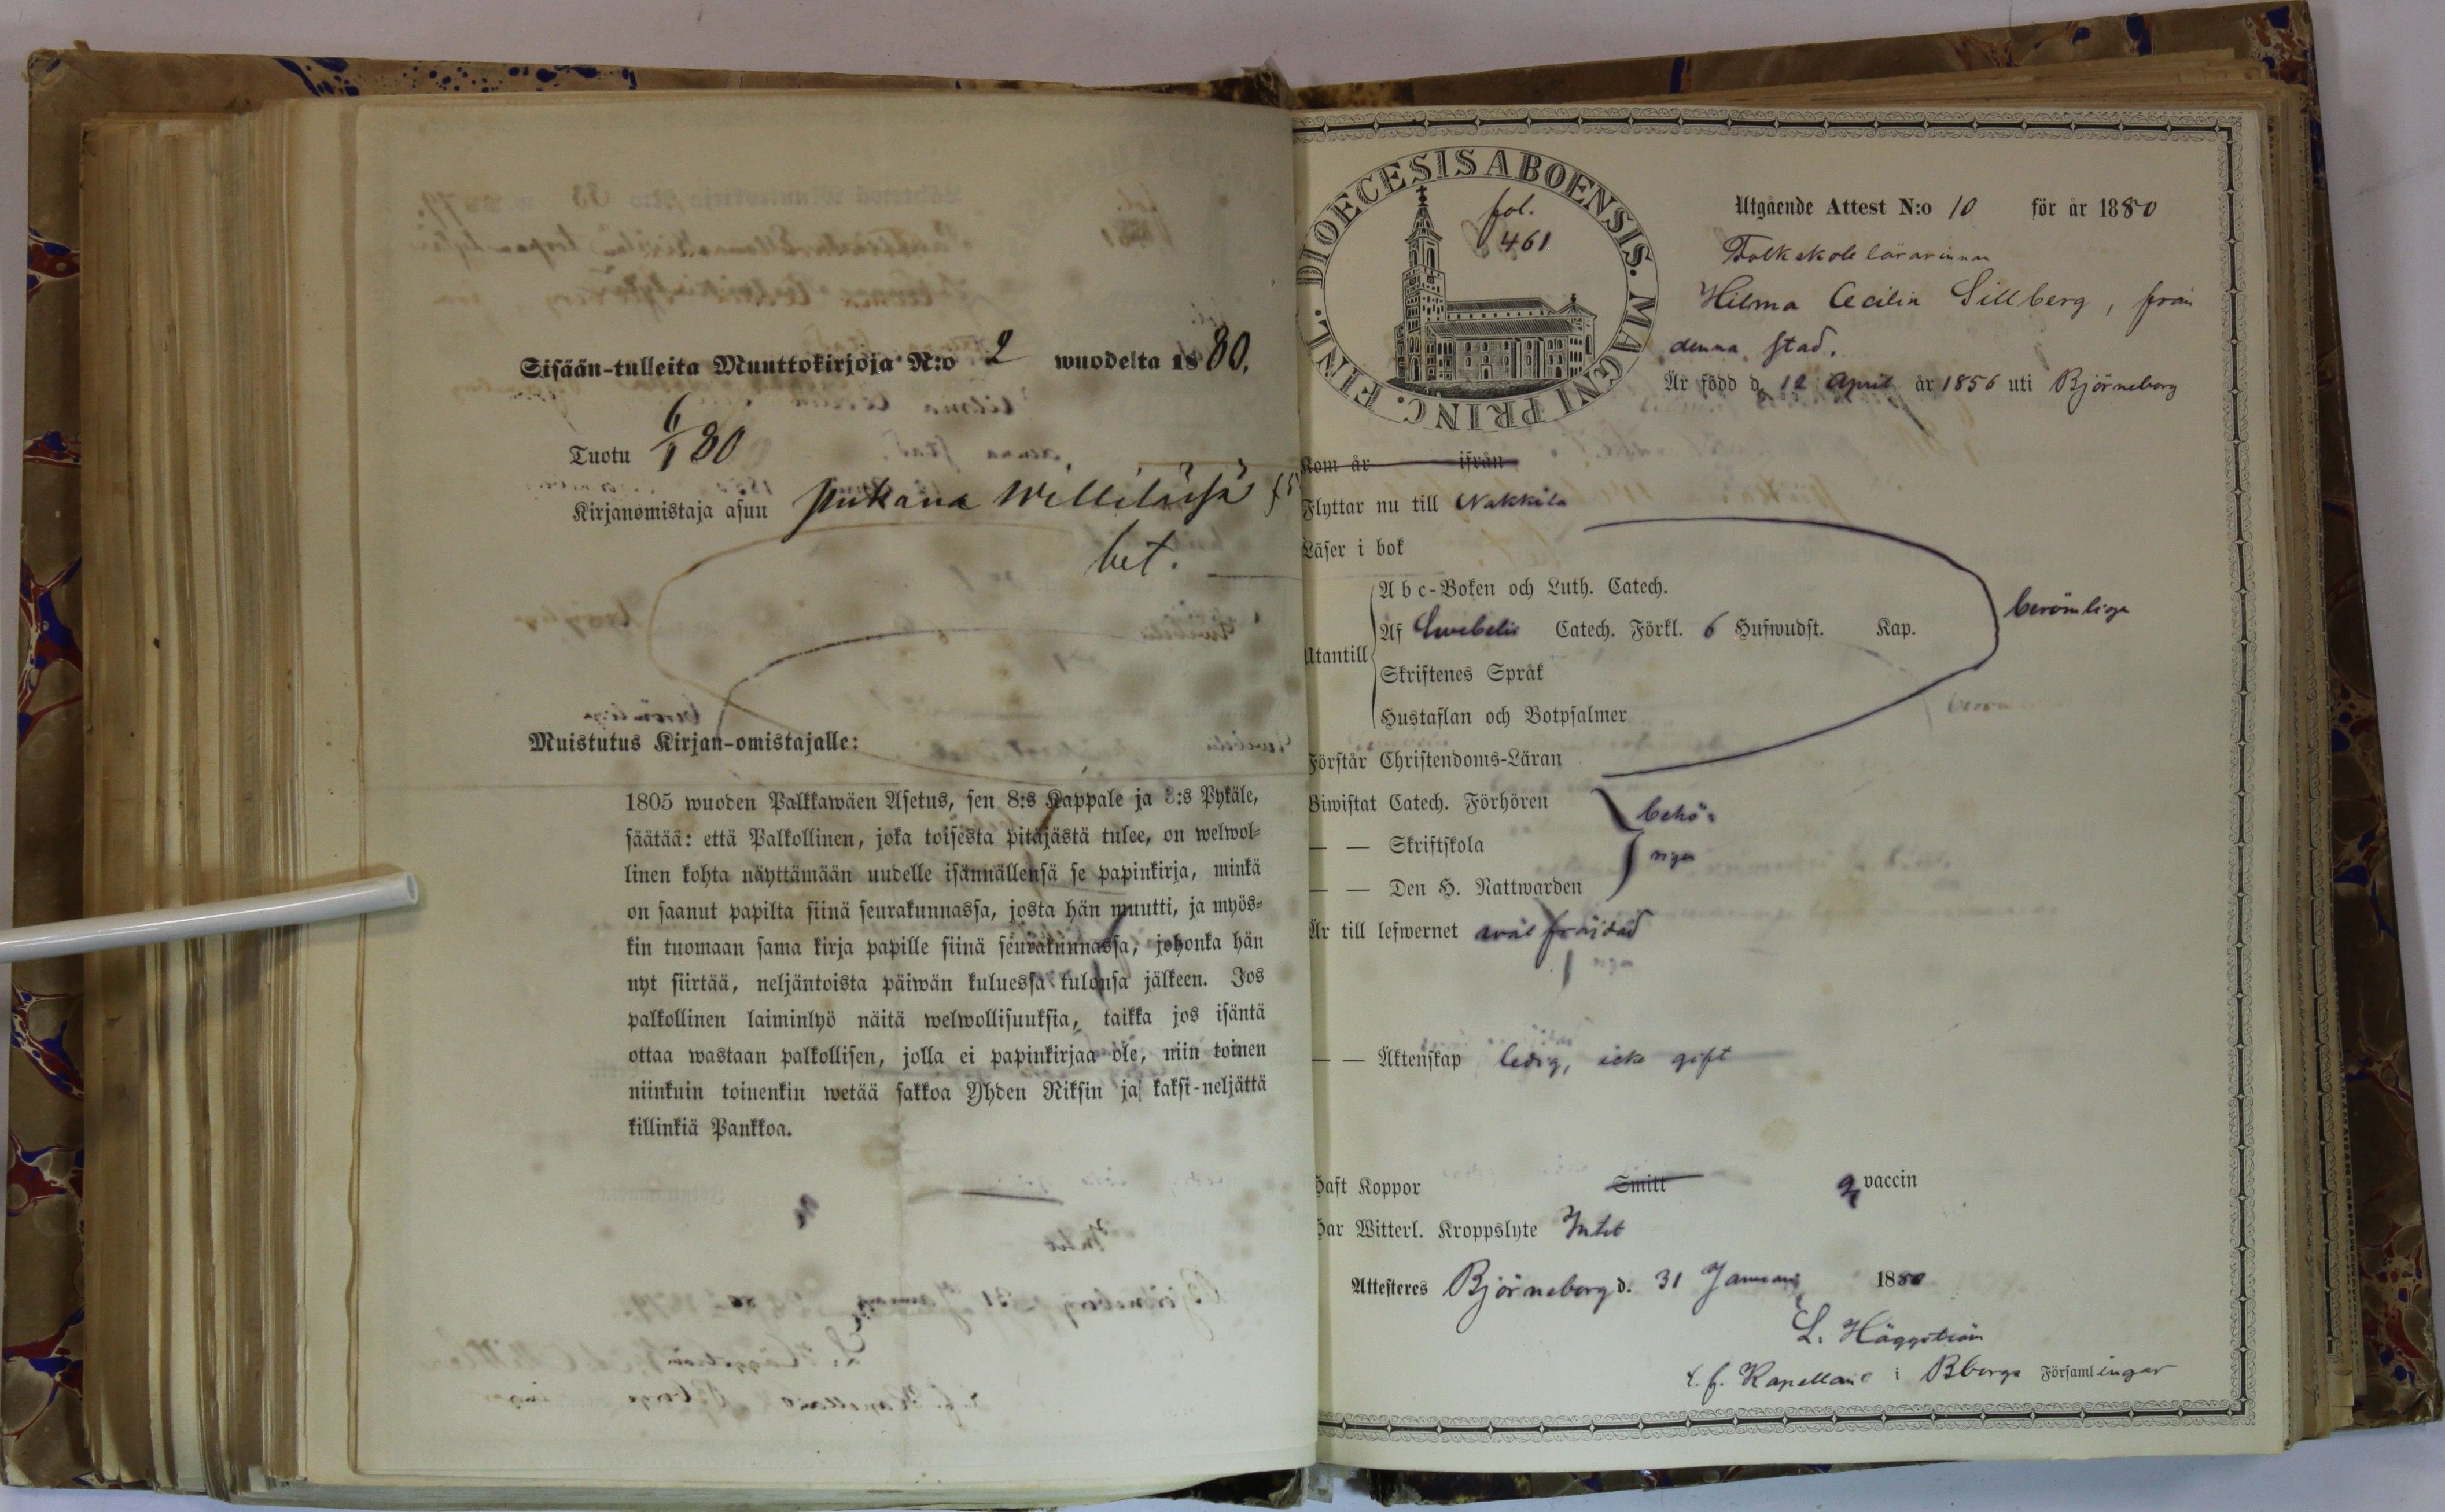 Sisään-tulleita Muuttokirjoja N:o 2 wuodelta 1880.
Tuotu 6/1 80
Kirjanomistaja asuu
bet.
Muistutus Kirjan-omistajalle:
1805 wuoden Palkkawäen Asetus, sen 8:s Kappale ja 3:s Pykäle,
säätää: että Palkollinen, joka toisesta pitäjästä tulee, on welwol-
linen kohta näyttämään uudelle isännällensä se papinkirja, minkä
on saanut papilta siinä seurakunnassa, josta hän muutti, ja myös-
kin tuomaan sama kirja papille siinä seurakunnassa, johonka hän
nyt siirtää, neljäntoista päiwän kuluessa tulonsa jälkeen. Jos
palkollinen laiminlyö näitä welwollisuuksia, taikka jos isäntä
ottaa wastaan palkollisen, jolla ei papinkirjaa ole, niin toinen
niinkuin toinenkin wetää sakkoa Yhden Riksin ja kaksi-neljättä
killinkiä Pankkoa.
DIOECESIS ABOENSIS. MAGNI PRINC. FINL.
fol.
461
Utgående Attest N:o 10 för år 1880
Folkskolelärarinnan
Hilma Cecilia Sillberg, från
denna stad.
Är född d. 12 April år 1856 uti Björneborg
Kom år ifrån
Flyttar nu till Nakkila
Läser i bok
Abc-Boken och Luth. Catech.
Af Swebelii Catech. Förkl. 6 Hufwudst. Kap.
berömliga
Utantill
Skriftenes Språk
Hustaflan och Botpsalmer
Förstår Christendoms-Läran
Biwistat Catech. Förhören
behö-
— — Skriftskola
rigen
— — Den H. Nattwarden
Är till lefwernet wäl fräjdad
— — Äktenskap ledig, icke gift
Haft Koppor Smitt vaccin
Har Witterl. Kroppslyte Intet
Attesteres Björneborg d. 31 Januari 1880
L. Häggström
t. f. Kapellan i Bborgs Församlingar